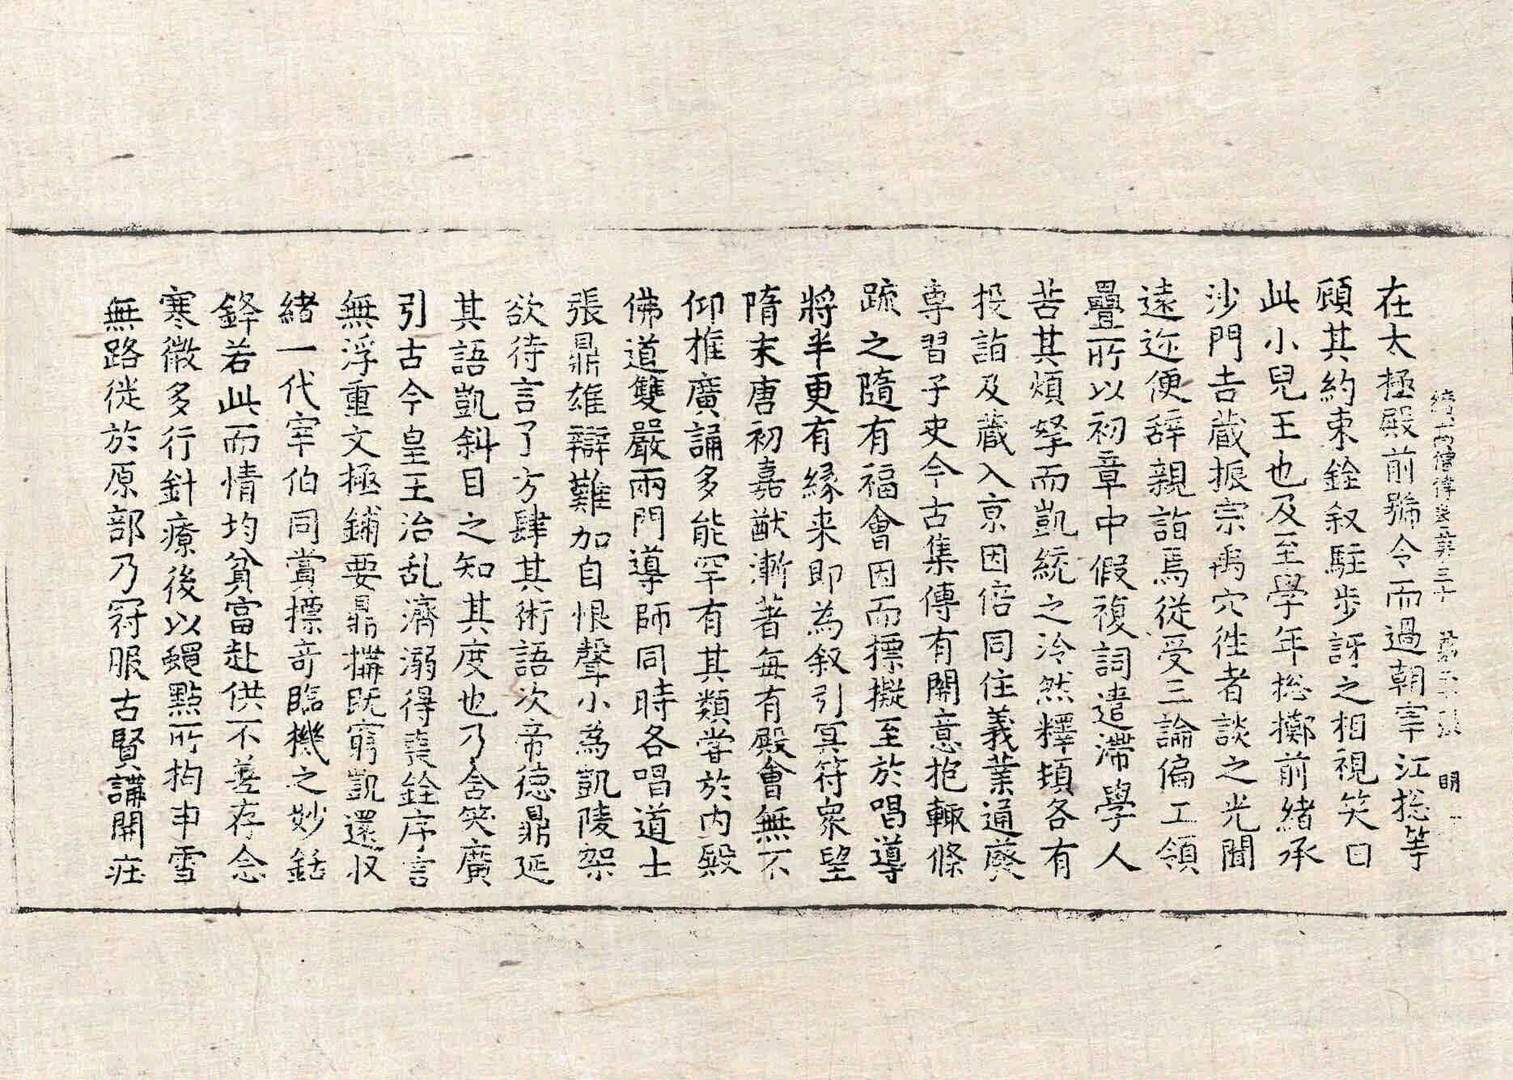 續高僧傳卷第三十 第三十張 明
在太極殿前號令而過朝宰江揔等
顧其約束銓叙駐步訝之相視笑曰
此小兒王也及至學年揔擲前緒承
沙門吉蔵振宗禹穴徃者談之光聞
遠迩便辞親詣焉從受三論偏工領
疊所以初章中假複詞遣滯學人
苦其煩拏而凱統之泠然釋頓各有
投詣及蔵入亰因倍同住義業通廢
專習子史今古集傳有開意抱輙條
䟽之隨有福會因而摽擬至於唱導
將半更有緣来即為叙引冥符衆望
隋末唐初嘉猷漸著每有殿會無不
仰推廣誦多能罕有其類甞於内殿
佛道雙嚴兩門導師同時各唱道士
張鼎雄辯難加自恨聲小為凱陵架
欲待言了方肆其術語次帝德鼎延
其語凱斜目之知其度也乃含笑廣
引古今皇王治乱濟溺得喪銓序言
無浮重文極鋪要鼎搆既窮凱還収
緒一代宰伯同賞摽竒臨機之妙銛
鋒若此而情均貧富赴供不差存念
寒微多行針療後以蝿點所拘申雪
無路徙於原部乃冠服古賢講開疰